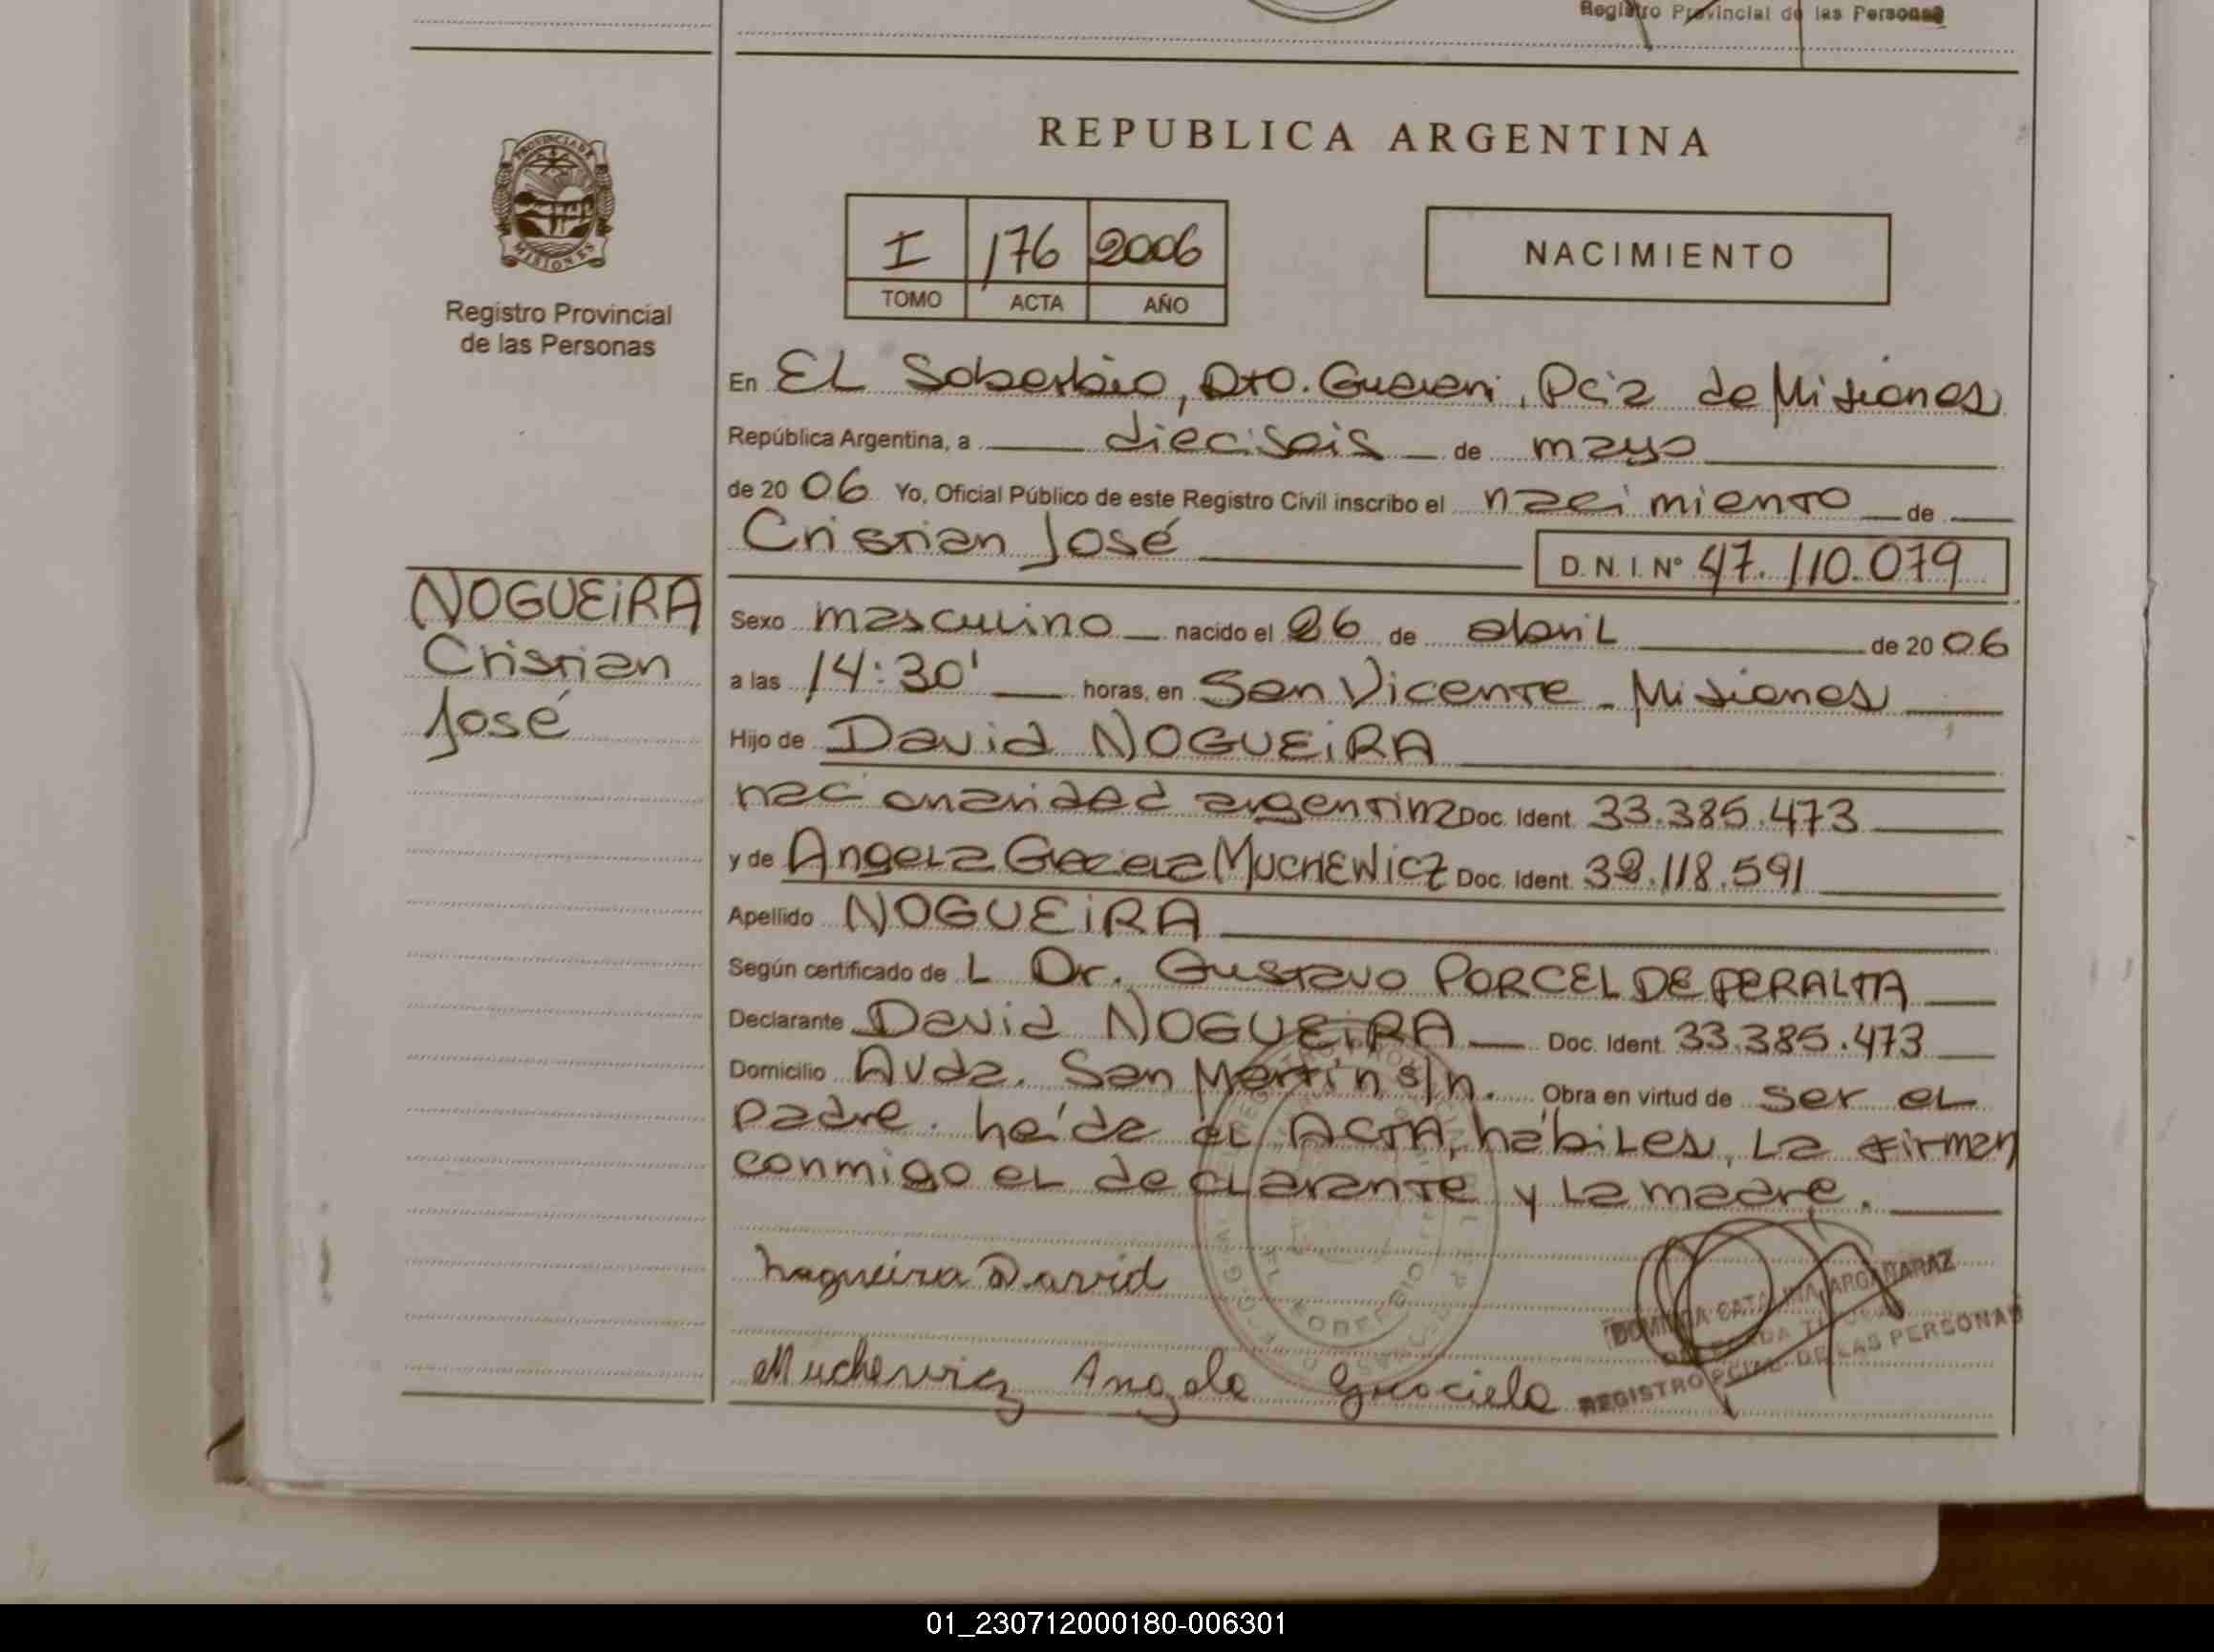 Registro Provincial de las Personas
REPUBLICA ARGENTINA
PROVINCIA DE
MISIONES
Registro Provincial
de las Personas
I 176 2006
TOMO ACTA AÑO
NACIMIENTO
En EL Soberbio, Dto. Guarani, Pcia de Misiones
República Argentina, a dieciseis de mayo
de 2006 Yo, Oficial Público de este Registro Civil inscribo el nacimiento de
Cristian José
D. N. I. N° 47.110.079
NOGUEIRA
Cristian
José
Sexo masculino nacido el 26 de abril de 2006
a las 14:30' horas, en San Vicente - Misiones
Hijo de David NOGUEIRA
nacionalidad argentina Doc. Ident. 33.385.473
y de Angela Graciela MUCHEWICZ Doc. Ident. 118.591
Apellido NOGUEIRA
Según certificado de L Dr. Gustavo PORCEL DE PERALTA
Declarante David NOGUEIRA Doc. Ident. 33.385.473
Domicilio Avda. San Martin s/n. Obra en virtud de ser el
padre. heída el ACTA, hábiles, la firman
conmigo el declarante y la madre.
Nogueira David
Muchewicz Angela Graciela
CATALINA ARGAÑARAZ
REGISTRO PCIAL. DE LAS PERSONAS
EL SOBERBIO
01_230712000180-006301